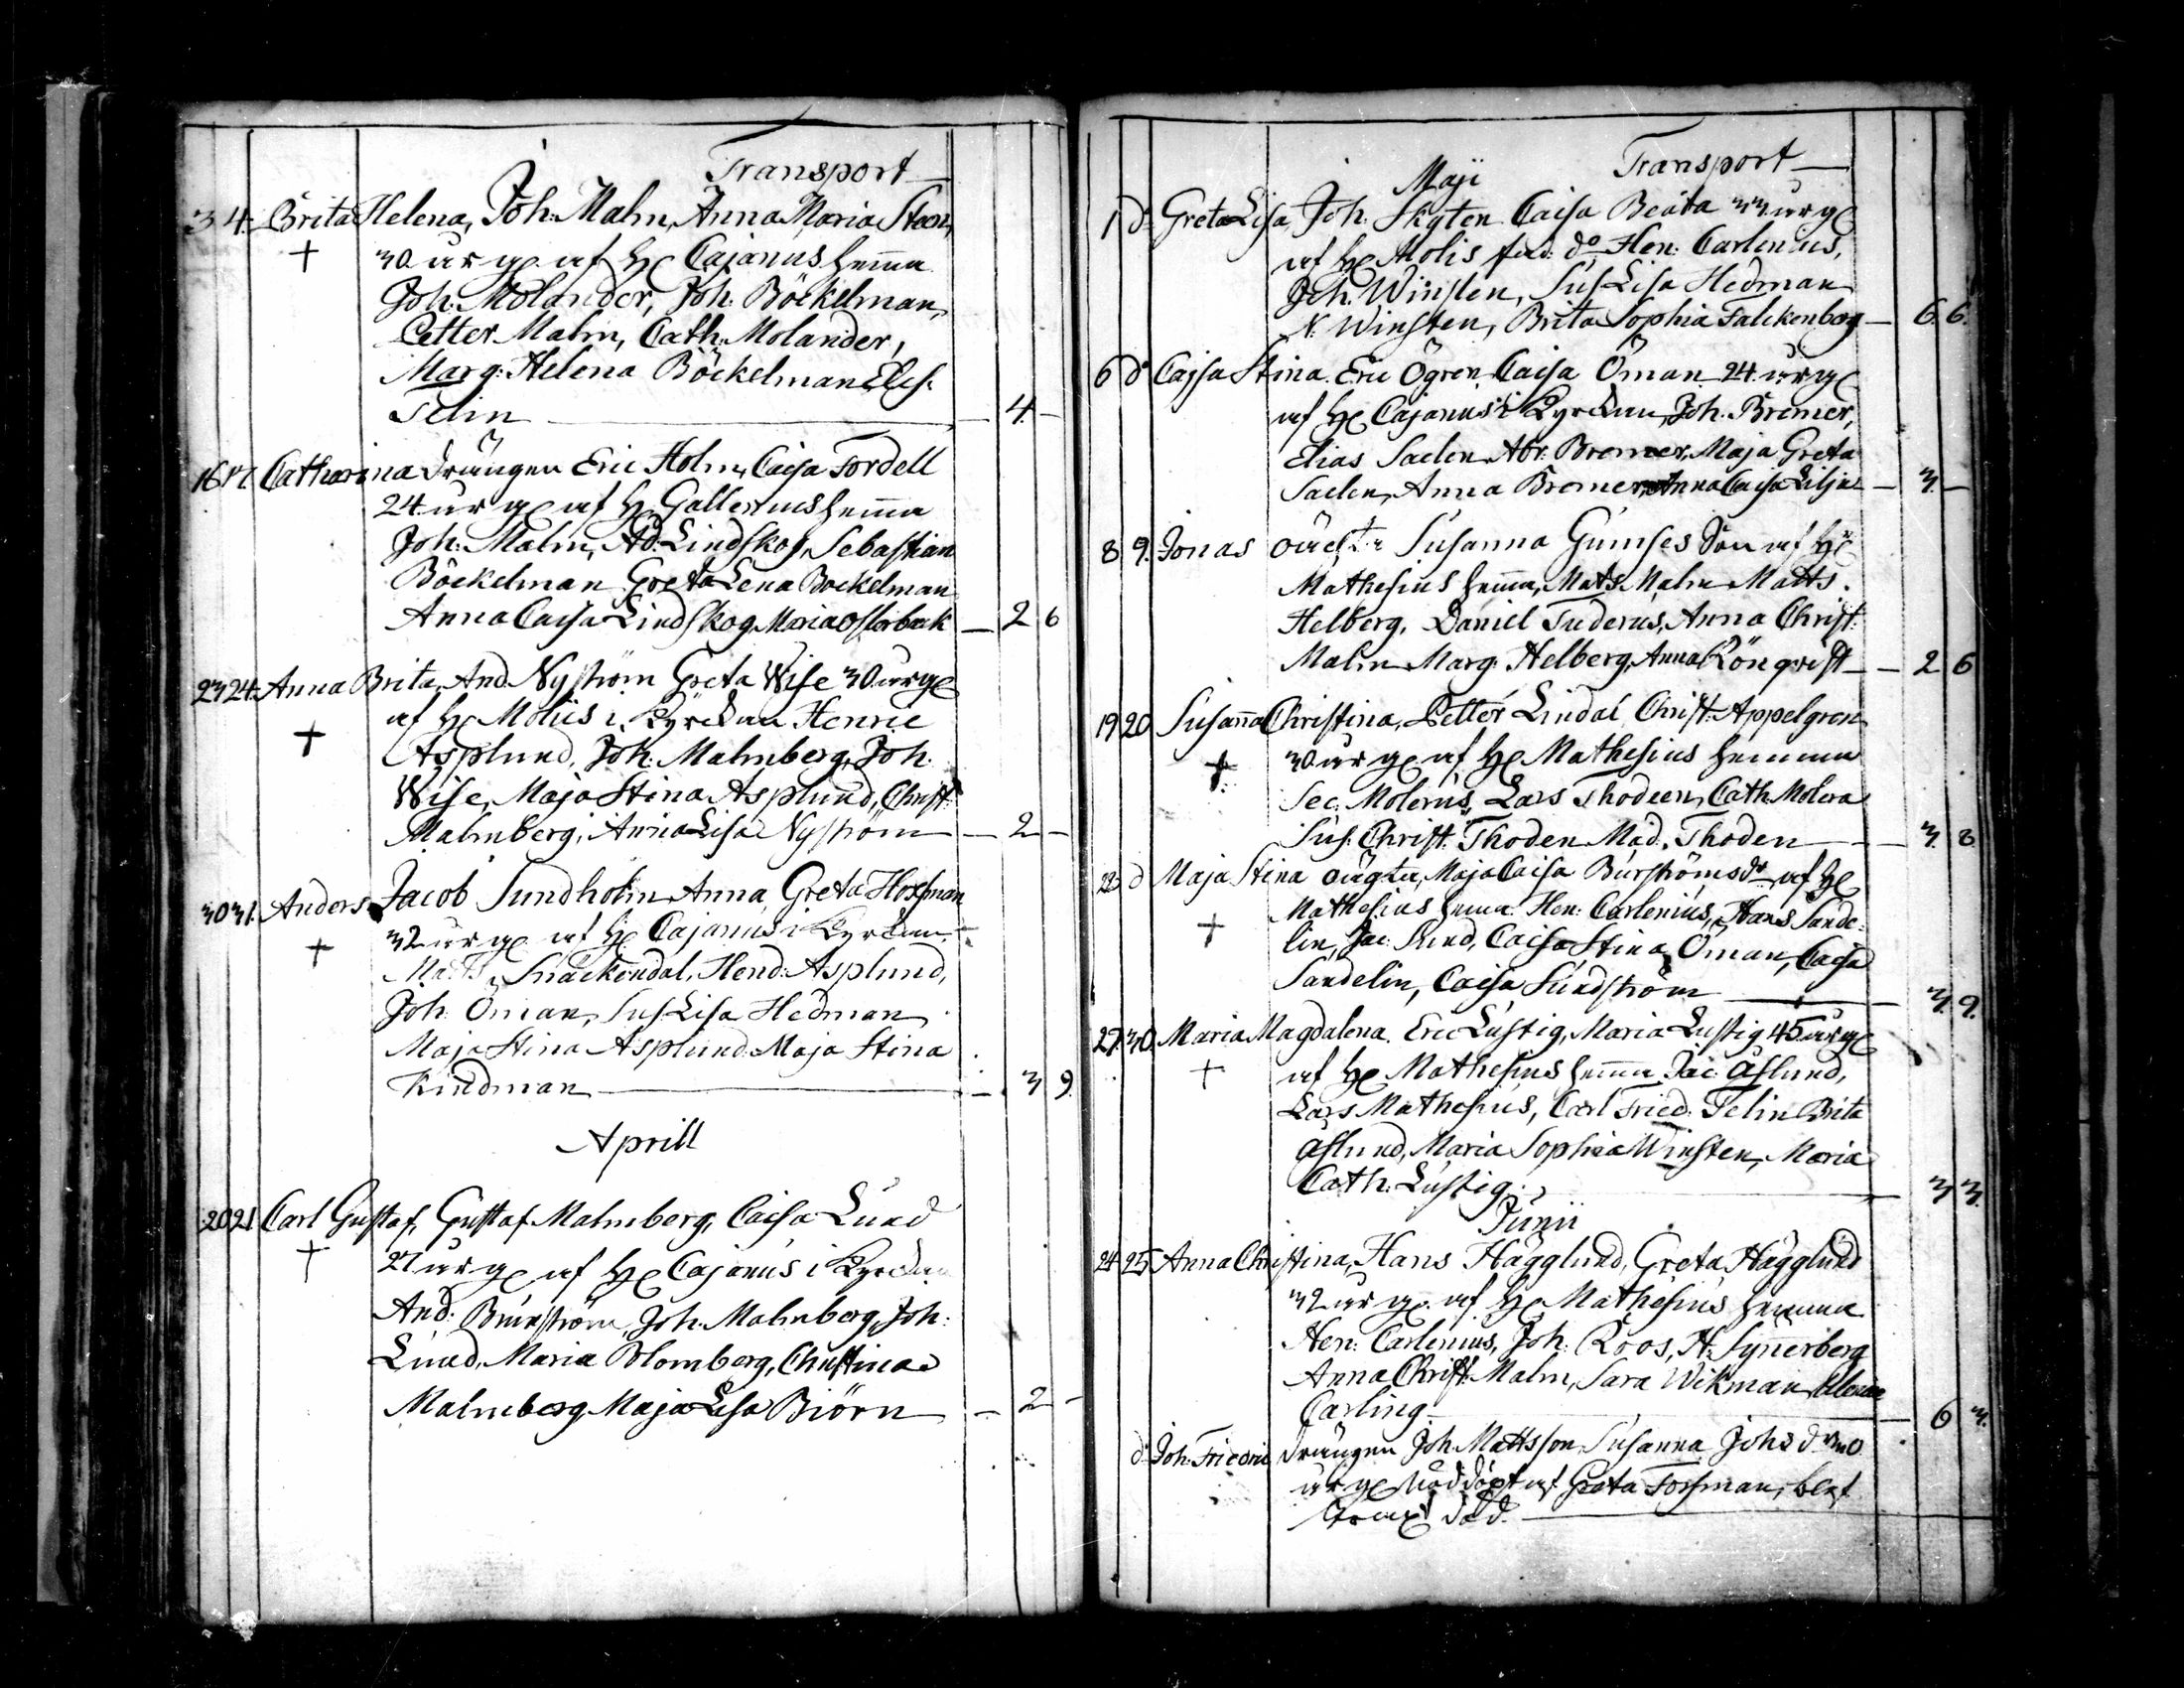 Transport
3 4. Brita Helena, Joh: Malm, Anna Maria Steen,
30 år gl af Hr Cajanus hemma
Joh: Molander, Joh: Böckelman,
Petter Malm, Cath. Molander,
Marg: Helena Böckelman, Elis.
Telin — 4 —
16 17. Catharina drängen Eric Holm, Caisa Fordell
24 år gl af H Gallenius hemma
Joh: Malm, Ad: Lindskog, Sebastian
Böckelman Greta Lena Böckelman
Anna Caisa Lindskog Maria — 2 6
23 24. Anna Brita, And. Nyström Greta Wise 30 år gl
af Hr Moliis i Kyrckan Henric
Asplund, Joh: Malmberg, Joh.
Wise, Maja Stina Asplund, Christ:
Malmberg, Anna Lisa Nyström — 2 —
30 31. Anders Jacob Sundholm Anna Greta
32 år gl af Hr Cajanus i Kyrckan
Matts Snäckendal, Hend: Asplund,
Joh Öman, Sus Lisa Hedman
Maja Stina Asplund Maja Stina
Kindman — 3 9.
Aprill
20 21 Carl Gustaf, Gustaf Malmberg, Caisa Lund
27 år gl af Hr Cajanus i Kyrckan
And: Burström, Joh. Malmberg, Joh:
Lund, Maria Blomberg, Christina
Malmberg Maja Lisa Biörn — 2 —
Transport
Maji
1 do Greta Lisa Joh. Skyten Caisa Beata 33 år gl
af Hr Molis do Hen: Carlenius,
Joh. Winsten, Sus Lisa Hedman
N. Winsten, Brita Sophia Falckenberg — 6. 6.
6 do Cajsa Stina. Eric Ögren Caisa Öman 24 år gl
af Hr Cajanus i Kyrckan, Joh. Bremer,
Elias Saelen Abr: Bremer, Maja Greta
Saelen, Anna Bremer, Anna Caisa Lilja — 3. —
8 9. Jonas oächta Susanna Gumses Son af Hr
Mathesius hemma, Mats Malm Matts.
Helberg, Daniel Tuderus, Anna Christ:
Malm Marg: Helberg, Anna Rönqvist — 2 6
19 20 Susanna Christina, Petter Lindal Christ: Appelgren
30 år gl af Hr Mathesius hemma
Sec: Molerus, Lars Thodeen, Cath Molera
Sus. Christ. Thoden Mad. Thoden — 3. 8
22 do Maja Stina oächta, Maja Caisa Burströms dr af Hr
Mathesius hemma Hen: Carlenius, Hans Sande-
lin, Jac: Lund, Caisa Stina Öman, Caisa
Sandelin, Caisa Sundström — 3. 9.
27 30. Maria Magdalena. Eric Lustig, Maria Lustig 45 år gl
af Hr Mathesius hemma Jac: Åslund,
Lars Mathesius, Carl Fried: Telin Brita
Åslund, Maria Sophia Winsten, Maria
Cath: Lustig — 3 3.
Junii
24 25 Anna Christina, Hans Hägglund, Greta Hägglund
32 år gl. af Hr Mathesius hemma
Hen: Carlenius, Joh: Roos, H: Synnerberg
Anna Christ: Malm, Sara Wikman, Helena
Carling — 6 3.
do Joh. Friedric drängen Joh. Mattsson, Susanna Johs d. 30
år gl Nöddöpt af Greta Forsman, blef
död.